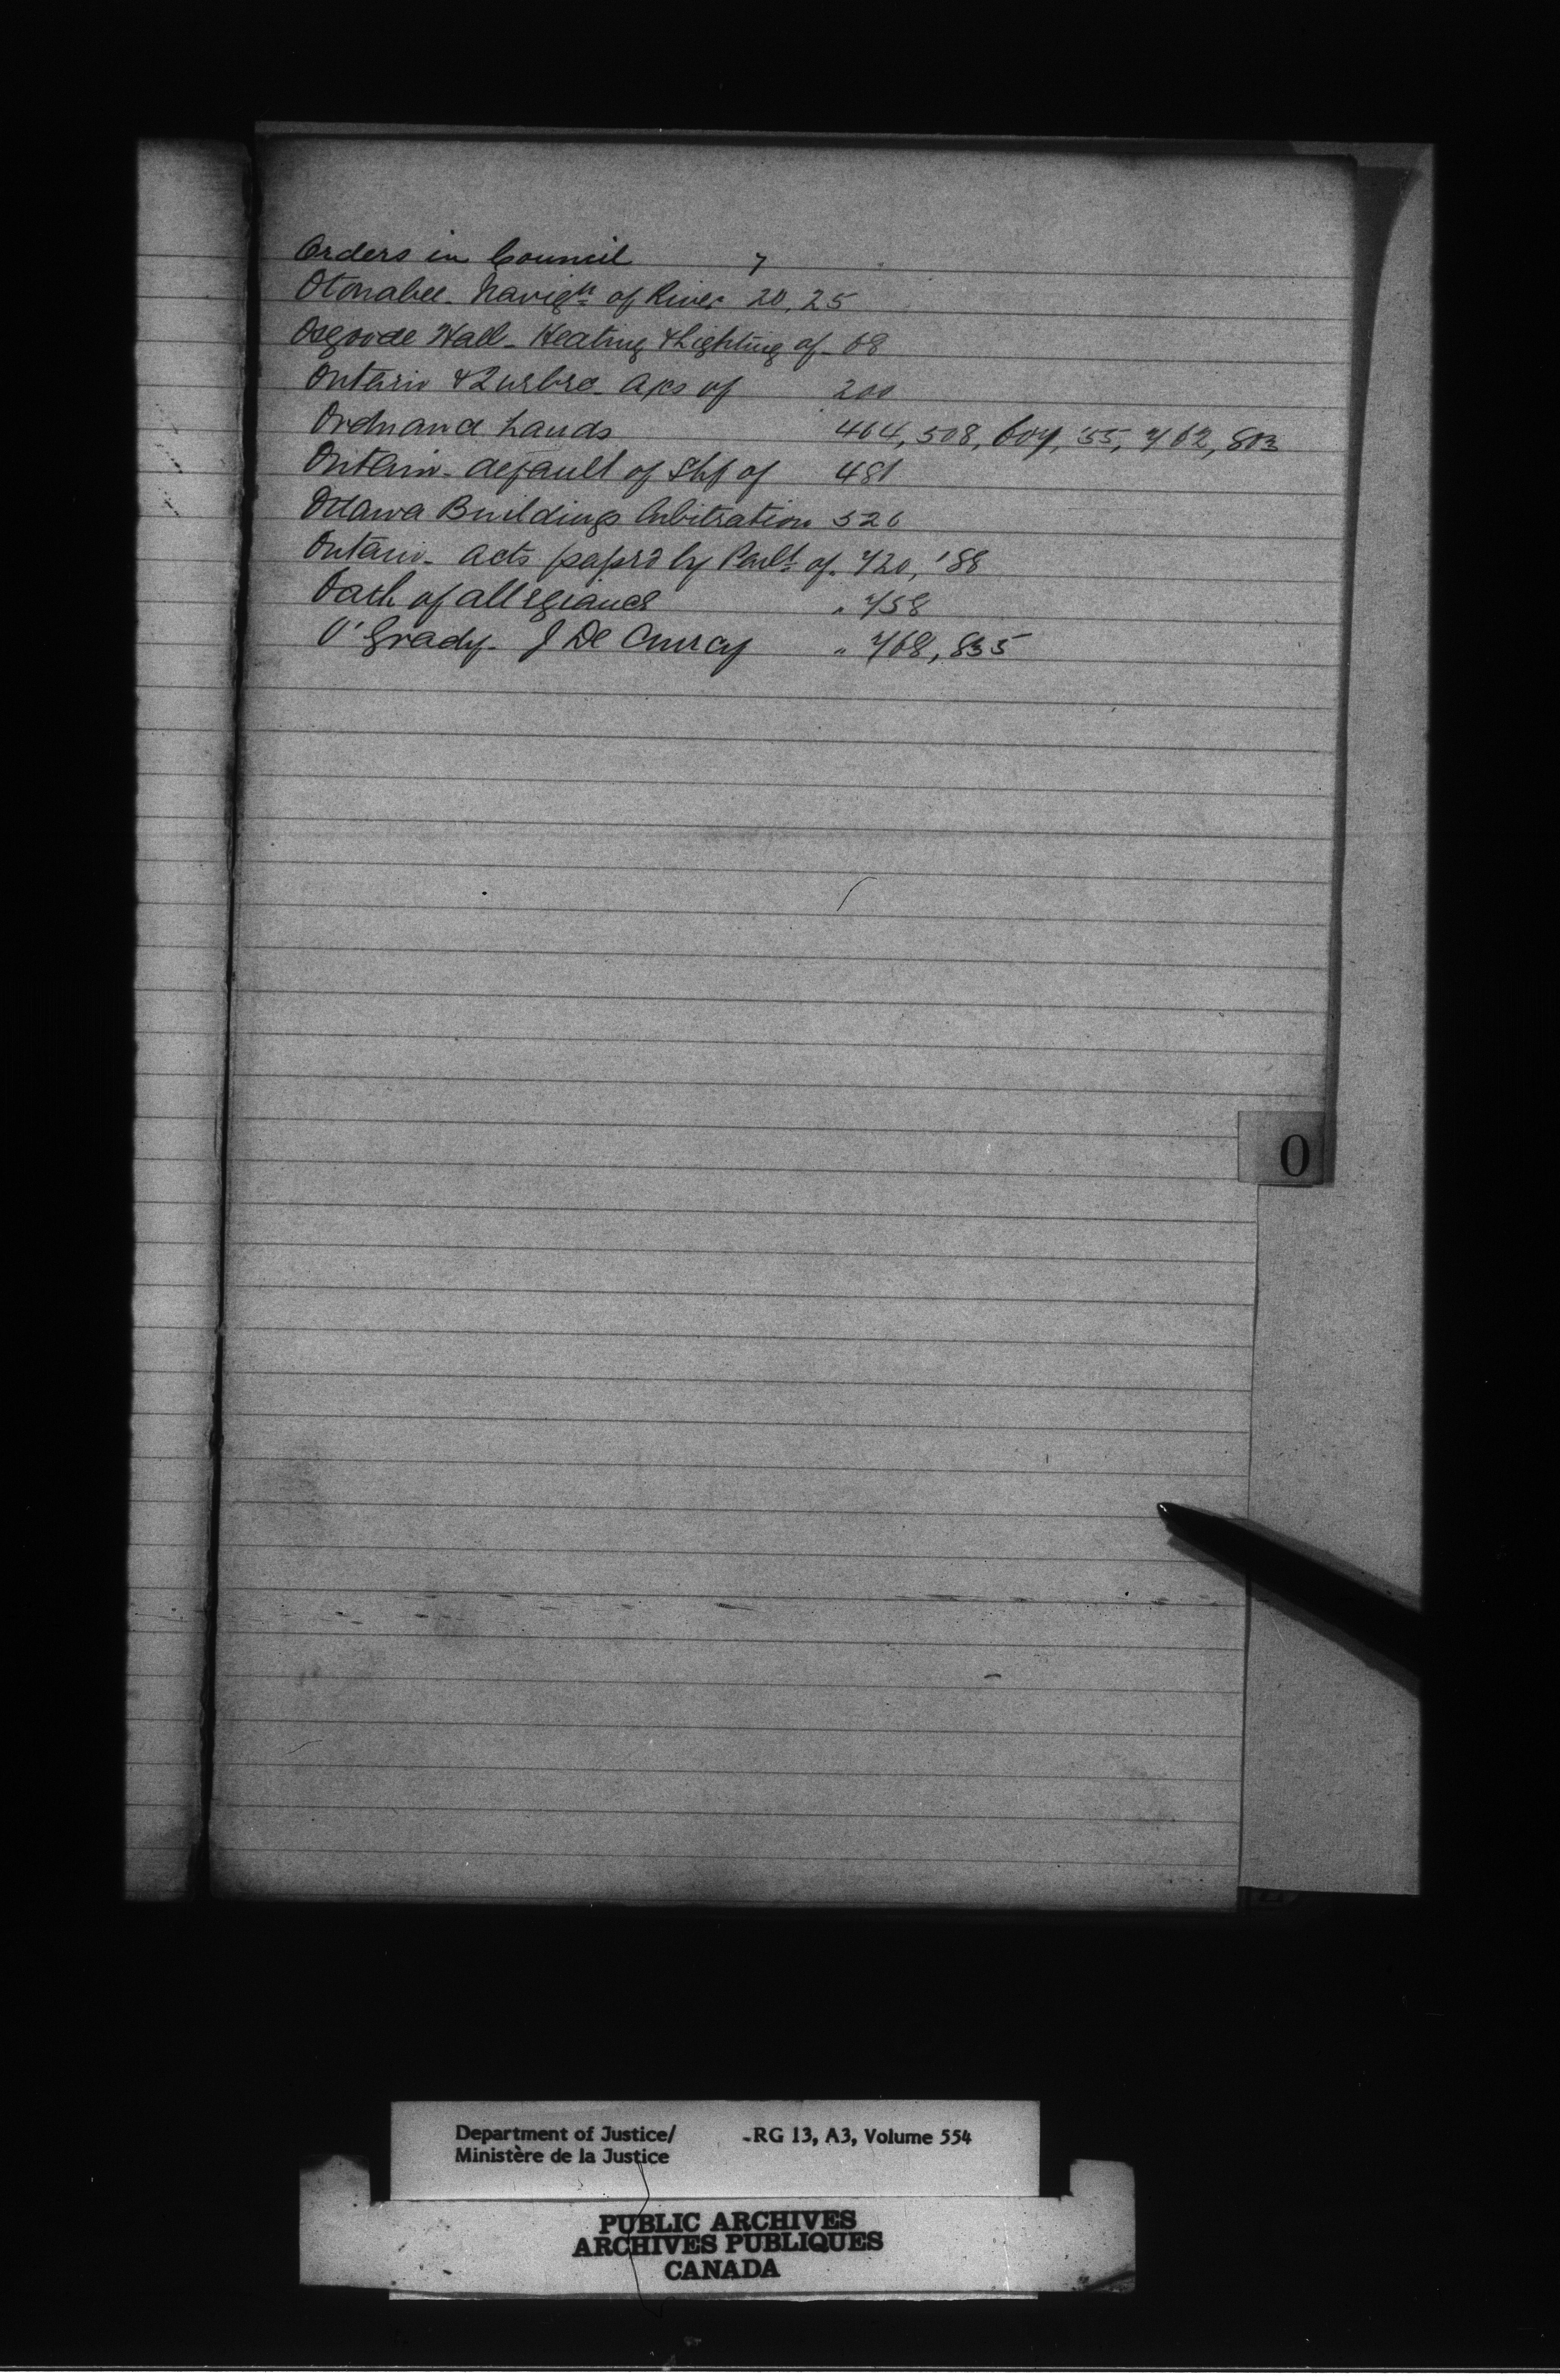 Orders in Council 7
Otonabee - Navign of River 20, 25
Osgoode Hall - Heating & Lighting of - 68
Ontario & Quebec - a/cs of 200
Ordnance Lands 464, 508, 604, '55, 762, 803
Ontario - default of Shf of 481
Ottawa Buildings Arbitration 526
Ontario - Acts passed by Parlt of. 720, '88
Oath of allegiance " 758
O'Grady - J De Courcy " 768, 835
O
Department of Justice/ -RG 13, A3, Volume 554
Ministère de la Justice
PUBLIC ARCHIVES
ARCHIVES PUBLIQUES
CANADA